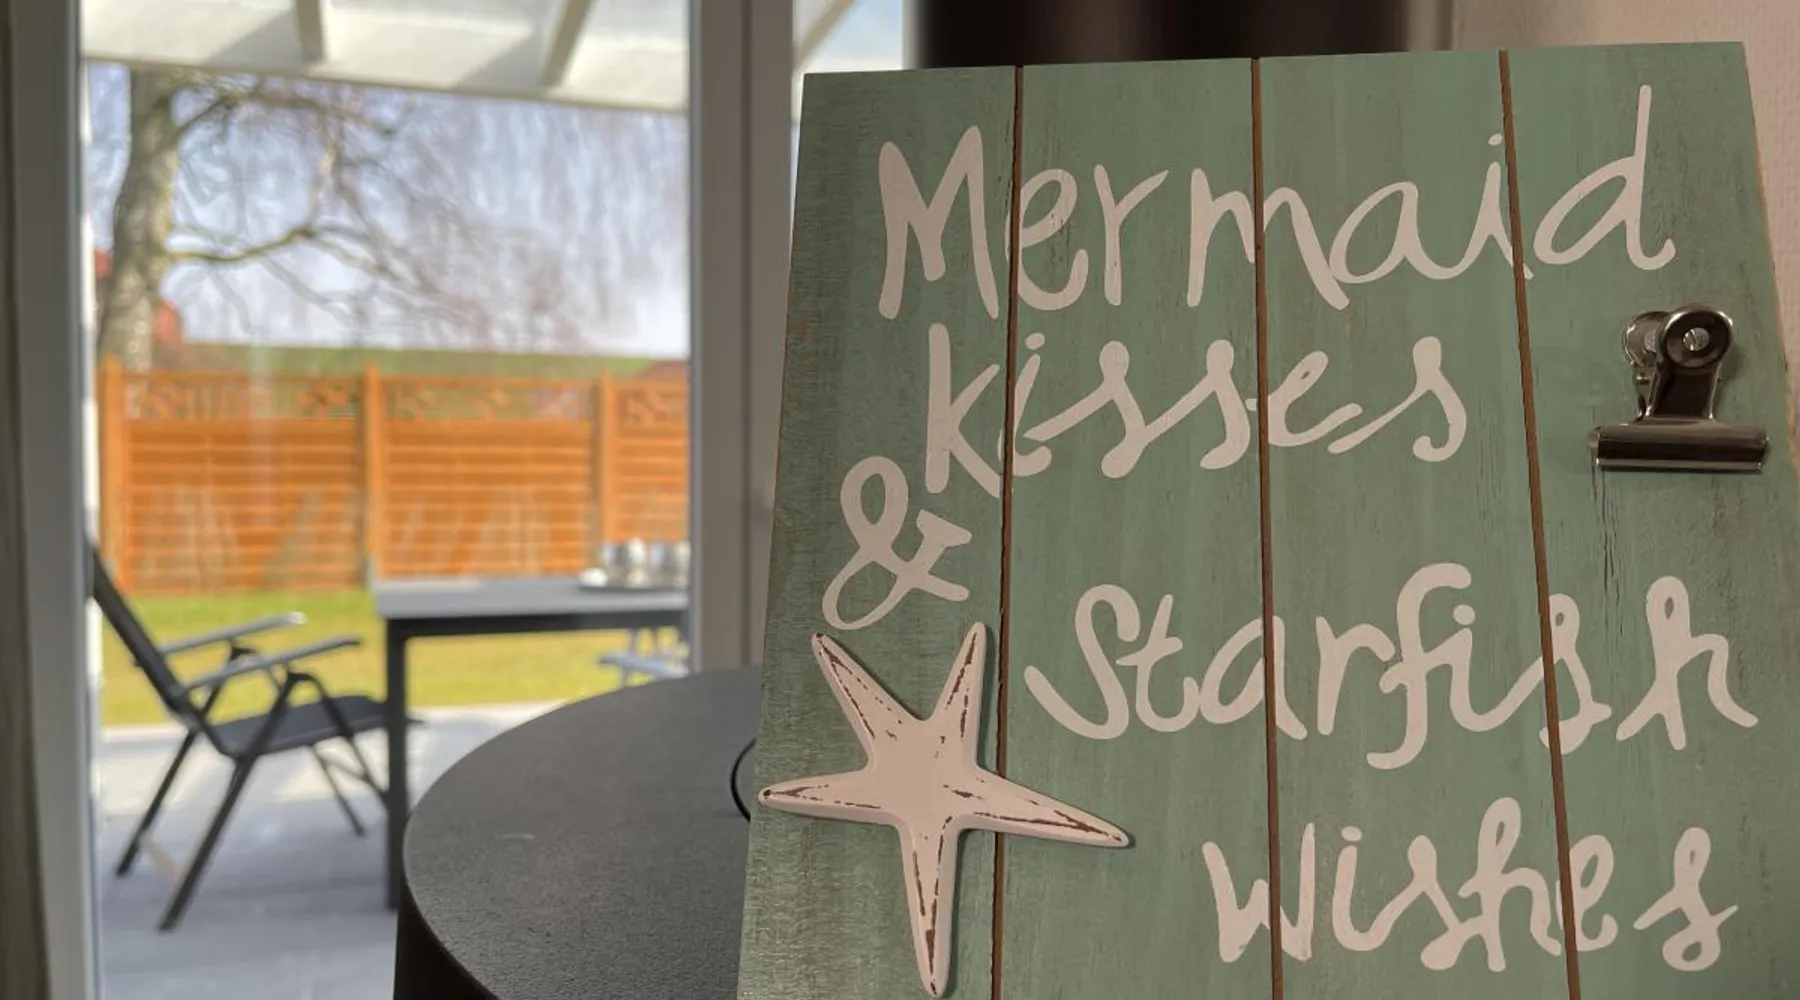 Mermaid
kisses
&
Starfish
wishes